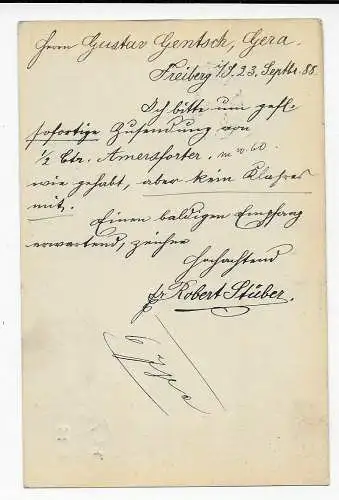 Herrn Gustav Gentsch, Gera.
Freiberg i/S. 23. Septbr. 88.
Ich bitte um gefl.
sofortige Zusendung von
1/2 Ctr. Amersforter.
wie gehabt, aber kein
mit.
Einen baldigen Empfang
erwartend, zeichne
Hochachtend
Robert Stüber.